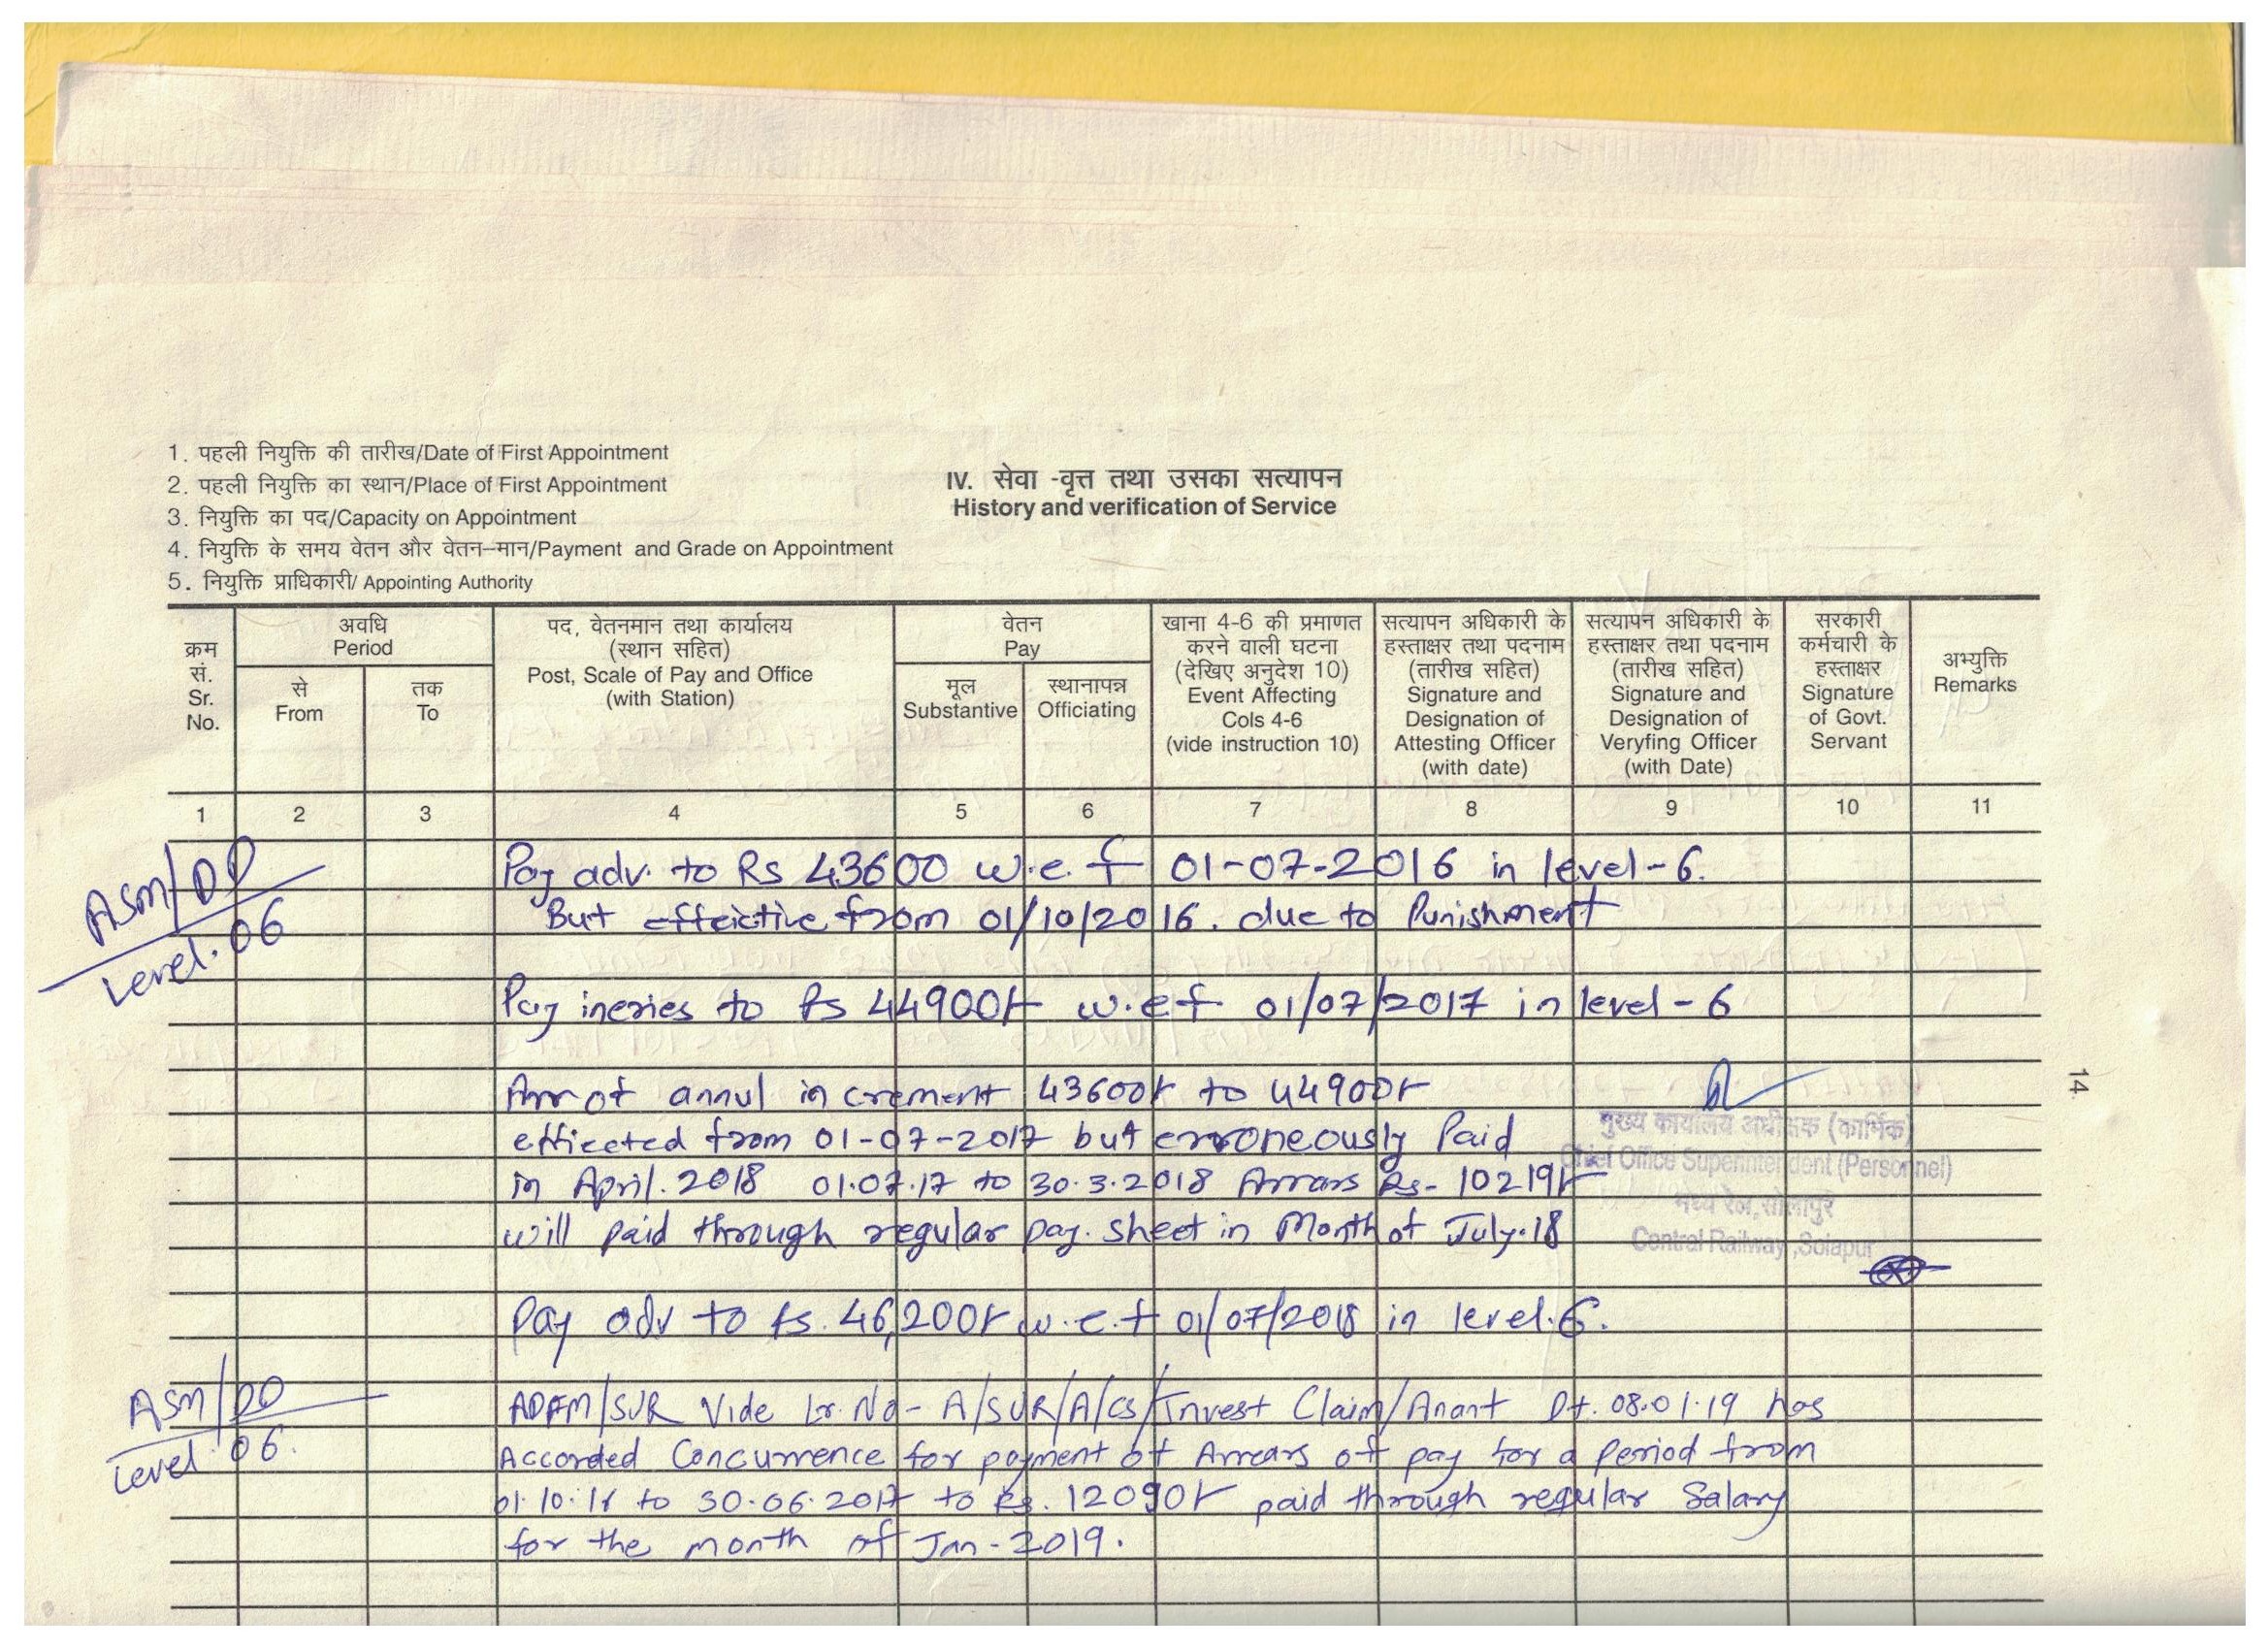 1. पहली नियुक्ति की तारीख/Date of First Appointment
2. पहली नियुक्ति का स्थान/Place of First Appointment
3. नियुक्ति का पद/Capacity on Appointment
4. नियुक्ति के समय वेतन और वेतन–मान/Payment and Grade on Appointment
5. नियुक्ति प्राधिकारी/ Appointing Authority
IV. सेवा -वृत्त तथा उसका सत्यापन
History and verification of Service
क्रम
सं.
Sr.
No.
अवधि
Period
से
From
तक
To
पद, वेतनमान तथा कार्यालय
(स्थान सहित)
Post, Scale of Pay and Office
(with Station)
वेतन
Pay
मूल
Substantive
स्थानापन्न
Officiating
खाना 4-6 की प्रमाणत
करने वाली घटना
(देखिए अनुदेश 10)
Event Affecting
Cols 4-6
(vide instruction 10)
सत्यापन अधिकारी के
हस्ताक्षर तथा पदनाम
(तारीख सहित)
Signature and
Designation of
Attesting Officer
(with date)
सत्यापन अधिकारी के
हस्ताक्षर तथा पदनाम
(तारीख सहित)
Signature and
Designation of
Veryfing Officer
(with Date)
सरकारी
कर्मचारी के
हस्ताक्षर
Signature
of Govt.
Servant
अभ्युक्ति
Remarks
1 2 3 4 5 6 7 8 9 10 11
ASM/DD
Level.06
Pay adv. to Rs 43600 w.e.f 01-07-2016 in level-6.
But effeictive from 01/10/2016. due to Punishment
Pay incries to Rs 44900/- w.e.f 01/07/2017 in level-6
Arr of annul increment 43600/- to 44900/-
efficeted from 01-07-2017 but erroneously Paid
in April.2018 01.07.17 to 30.3.2018 Arrars Rs- 10219/-
will paid through regular pay. sheet in Month of July.18
मुख्य कार्यालय अधीक्षक (कार्मिक)
Chief Office Superintendent (Personnel)
मध्य रेल,सोलापुर
Central Railway ,Solapur
14
Pay adv to Rs. 46,200/- w.e.f 01/07/2018 in level.6.
ASM/DD
Level 06.
ADFM/SUR Vide Lr. No- A/SUR/A/CS/Invest Claim/Anant Dt. 08.01.19 has
Accorded Concurrence for payment of Arrears of pay for a Period from
01.10.16 to 30.06.2017 to Rs. 12090/- paid through regular Salary
for the month of Jan-2019.